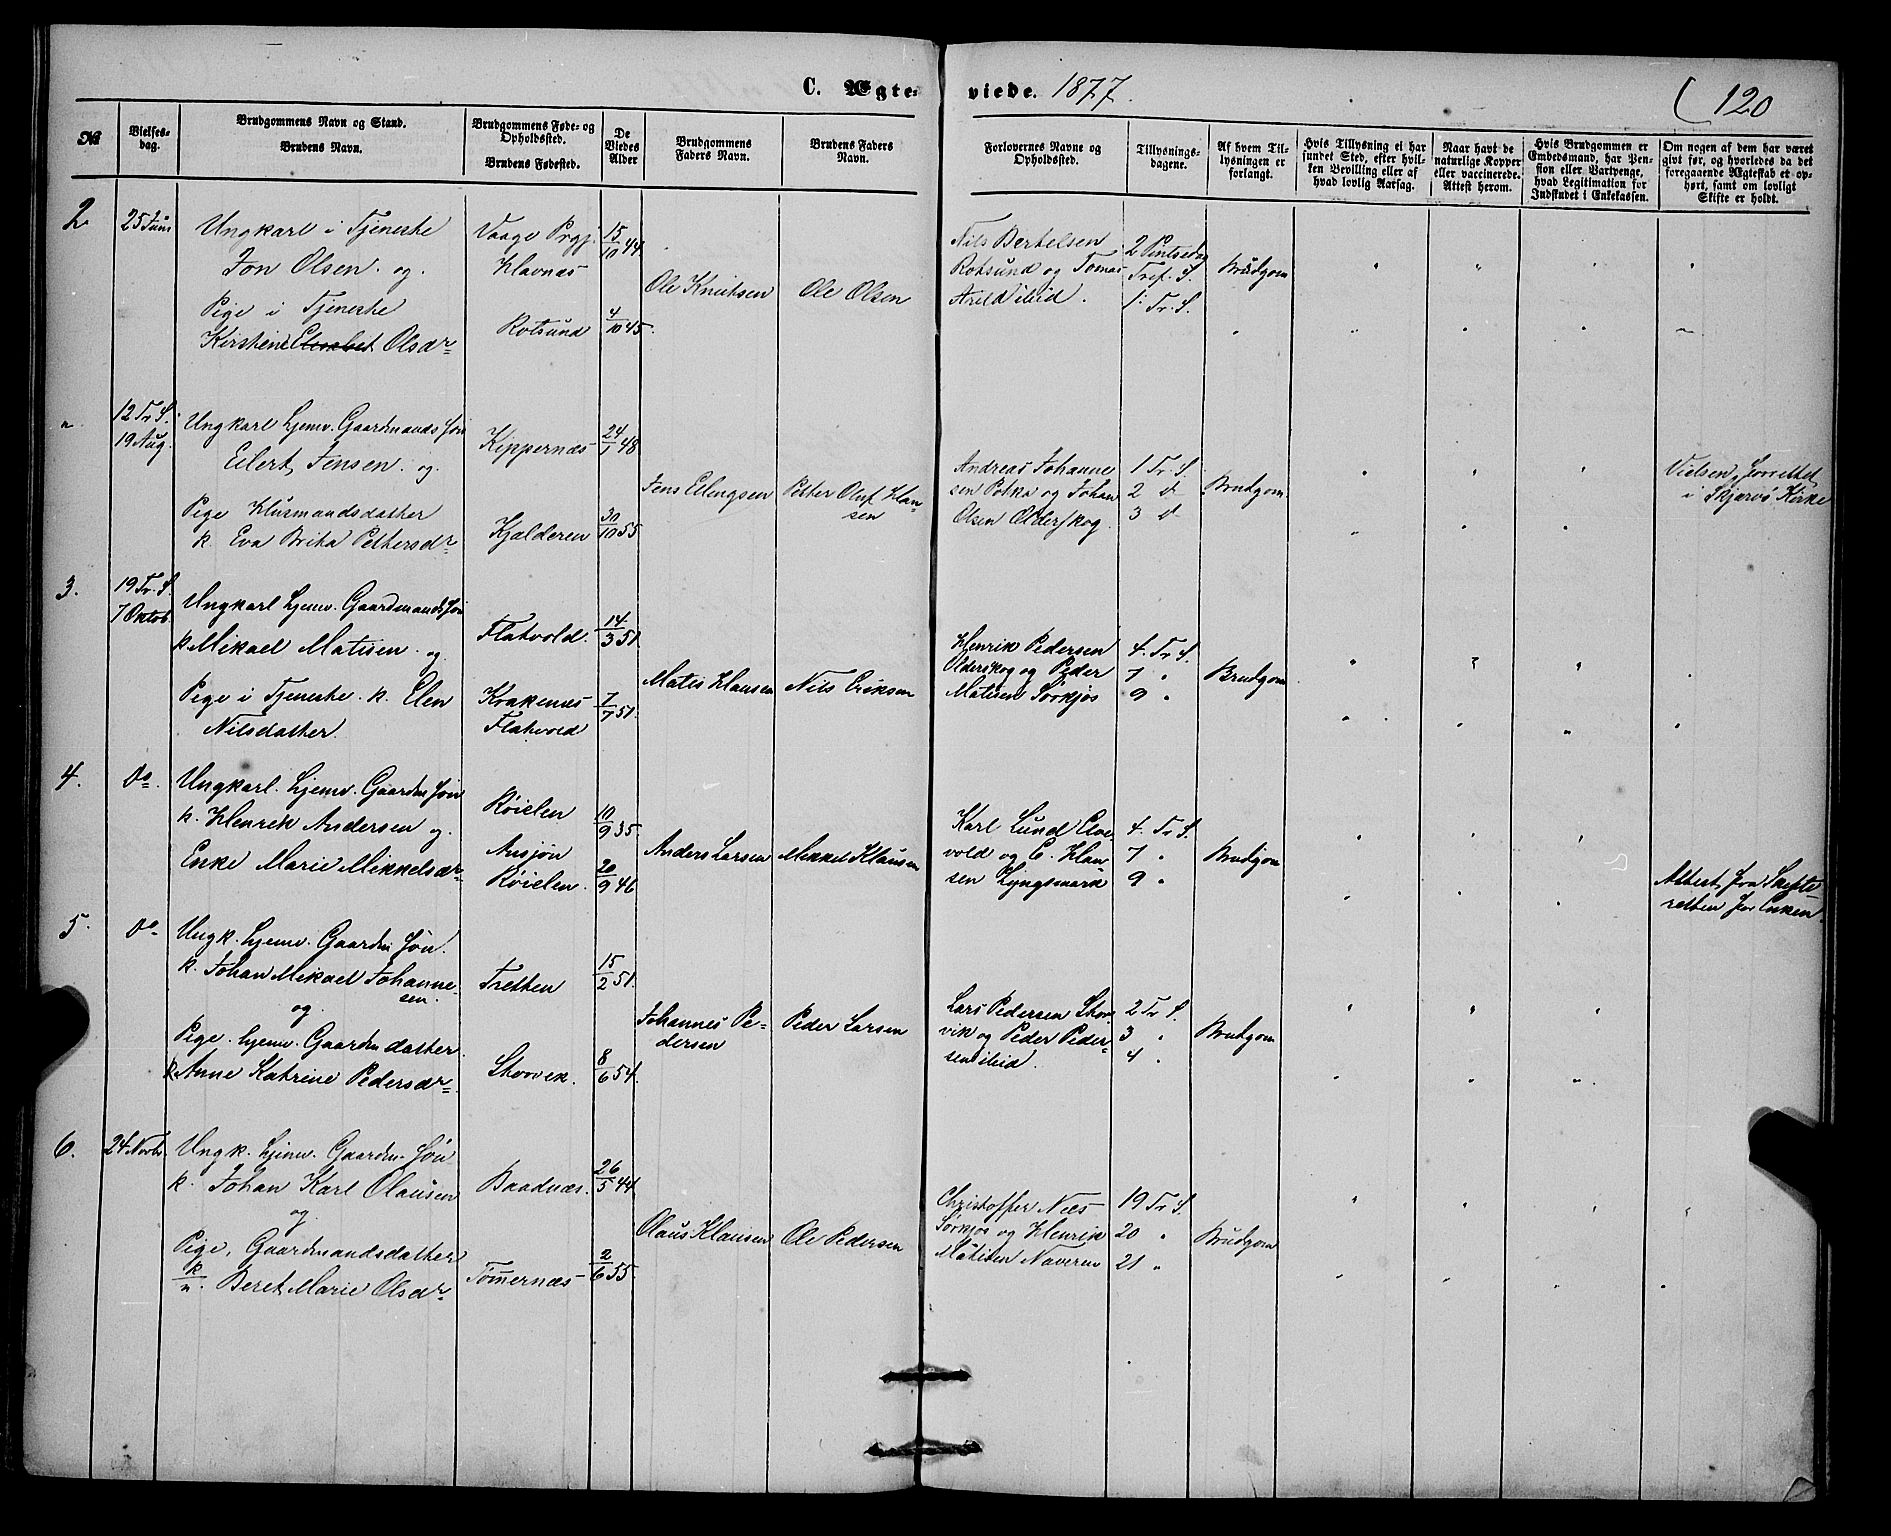 C. Ægteviede. 1877.
120
№
Vielses-dag.
Brudgommens Navn og Stand.
Brudens Navn.
Brudgommens Føde- og Opholdssted.
Brudens Fødested.
De Viedes Alder
Brudgommens Faders Navn.
Brudens Faders Navn.
Forlovernes Navne og Opholdssted.
Tillysnings-dagene.
Af hvem Tillysningen er forlangt.
Hvis Tillysning ei har fundet Sted, efter hvilken Bevilling eller af hvad lovlig Aarsag.
Naar havt de naturlige Kopper eller vaccinerede. Attest herom.
Hvis Brudgommen er Embedsmand, har Pension eller Vartpenge, hvad Legitimation for Indskudet i Enkekassen.
Om nogen af dem har været givt før, og hvorledes da det foregaaende Ægteskab et ophørt, samt om lovligt Skifte er holdt.
2
25 Juni
Ungkarl i Tjeneste
Jon Olsen. og
Pige i Tjeneste
Kirstine Elisabet Olsdr
Vaage Prgj.
Havnæs
Rotsund
15/10 44
4/10 45.
Ole Knutsen
Ole Olsen
Nils Bertelsen
Rotsund og Tomas
Arild ibid.
2 Pintsedag
Tref. S.
1. Tr. S.
Brudgom
12 Tr S.
19 Aug.
Ungkarl hjemv. Gaardmands Søn
Eilert Jensen. og
Pige Husmandsdatter
k. Eva Brita Pettersdr
Kippernæs
Kjelderen
24/1 48
30/10 55
Jens Eilingsen
Petter Oluf Hansen
Andreas Johannesen
Potka og Johan
Olsen Olderskog.
1 Tr. S.
2 d
3 d
Brudgom
Vielsen forrettet
i Skjervö Kirke
3.
19 Tr. S.
7 Oktob.
Ungkarl hjemv. Gaardmands Søn
k. Mikael Matisen. og
Pige i Tjeneste. k. Elen
Nilsdatter.
Flatvold.
Krakenes
Flatvold
14/3 51.
7/7 51.
Matis Hansen
Nils Eriksen
Henrik Pedersen
Olderskog og Peder
Matisen Sørkjos
4. Tr. S.
7 "
9 "
Brudgom
4.
Do.
Ungkarl. hjemv. Gaardm Søn
k. Henrik Andersen og
Enke Marie Mikkelsdr
Röielen
Ansjön
Röielen.
10/9 35
20/9 46
Anders Larsen
Mikkel Klausen
Karl Lund Elvevold
og C. Hansen
Lyngsmark
4. Tr S.
7 "
9 "
Brudgom
Attest fra Skifteretten
for Enken.
5.
Do
Ungk. hjemv. Gaardm Søn.
k. Johan Mikael Johannesen.
og
Pige. hjemv. Gaardm datter
k. Anne Katrine Pedersdr
Tretten
Storvik.
15/2 51.
8/6 54.
Johannes Pedersen
Peder Larsen
Lars Pedersen Storvik
og Peder Pedersen
ibid.
2 Tr S.
3 "
4 "
Brudgom
6.
24 Novbr.
Ungk. hjemv. Gaardm. Søn
k. Johan Karl Olausen
og
Pige, Gaardmandsdatter
k/n. Beret Marie Olsdr
Baadnæs.
Tömernæs
26/5 44
2/6 55.
Olaus Klausen
Ole Pedersen
Christoffer Nils
Sörkjos og Henrik
Matisen Naveren
19 Tr S.
20 "
21 "
Brudgom